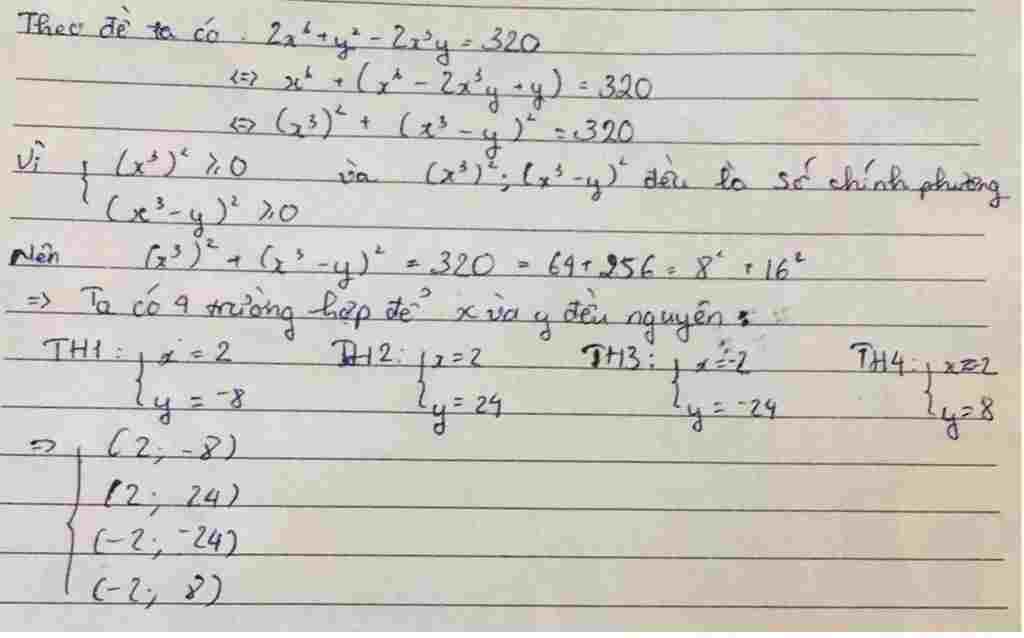 Theo đề ta có : 2x⁶ + y² - 2x³y = 320
<=> x⁶ + (x⁶ - 2x³y + y) = 320
<=> (x³)² + (x³ - y)² = 320
Vì { (x³)² ≥ 0 và (x³)² ; (x³ - y)² đều là số chính phương
(x³ - y)² ≥ 0
Nên (x³)² + (x³ - y)² = 320 = 64 + 256 = 8² + 16²
=> Ta có 4 trường hợp để x và y đều nguyên :
TH1 : { x = 2 TH2 : { x = 2 TH3 : { x = -2 TH4 : { x = -2
y = -8 y = 24 y = -24 y = 8
=> { (2; -8)
(2; 24)
(-2; -24)
(-2; 8)